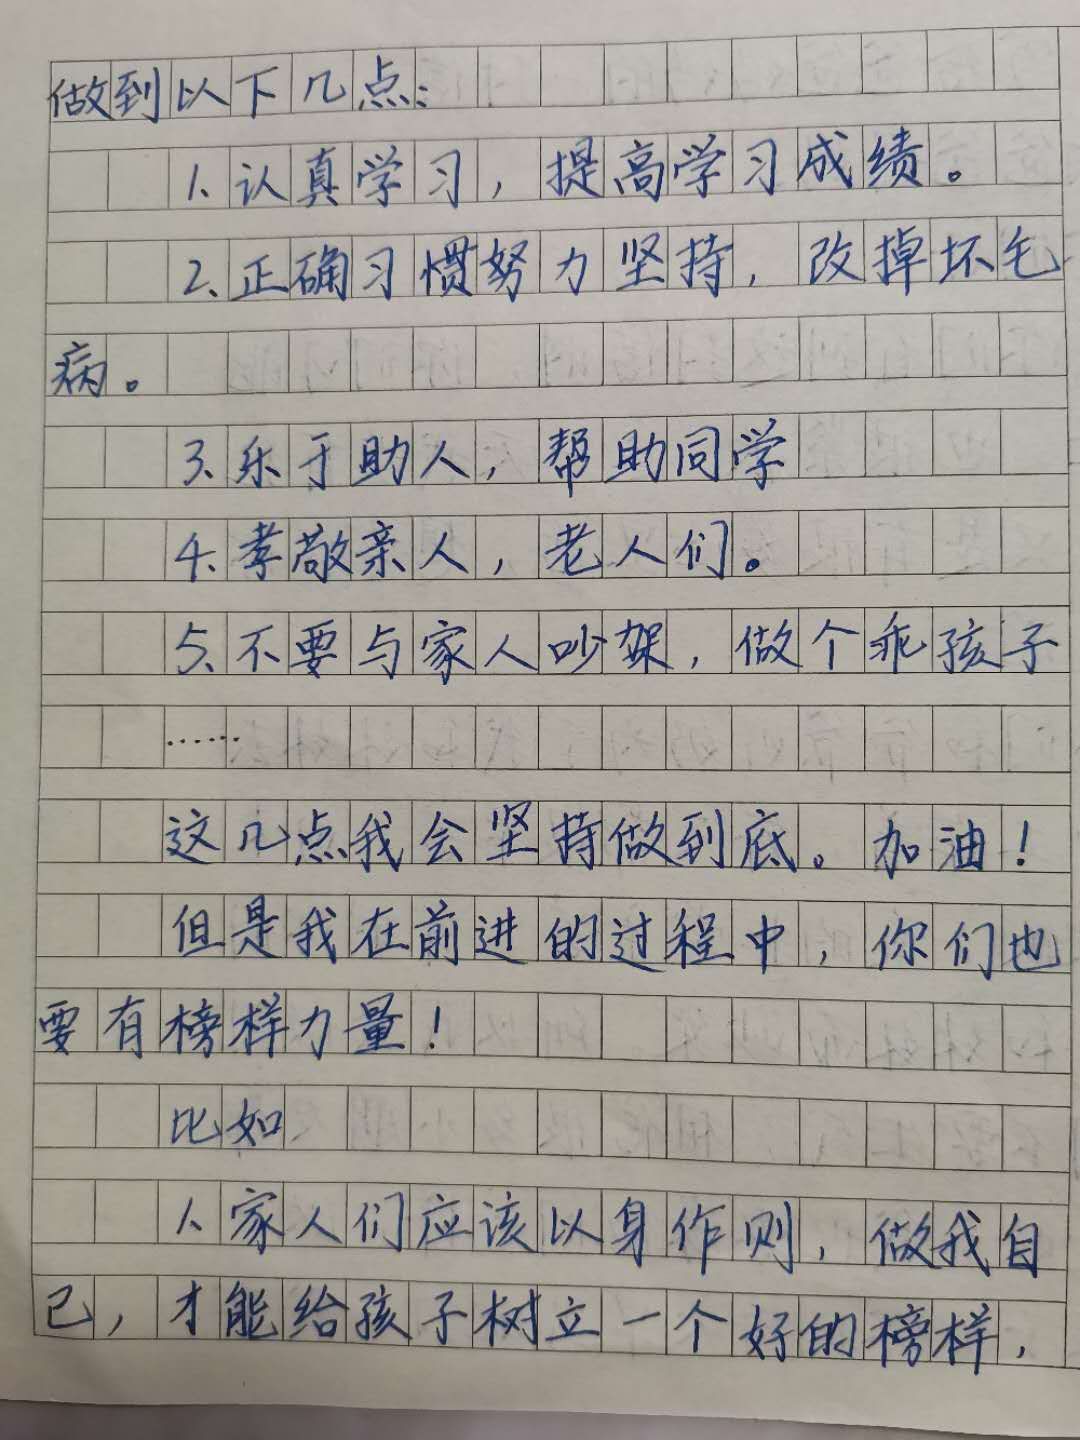 做到以下几点：
1、认真学习，提高学习成绩。
2、正确习惯努力坚持，改掉坏毛
病。
3、乐于助人，帮助同学
4、孝敬亲人，老人们。
5、不要与家人吵架，做个乖孩子
……
这几点我会坚持做到底。加油！
但是我在前进的过程中，你们也
要有榜样力量！
比如
1、家人们应该以身作则，做我自
己，才能给孩子树立一个好的榜样，